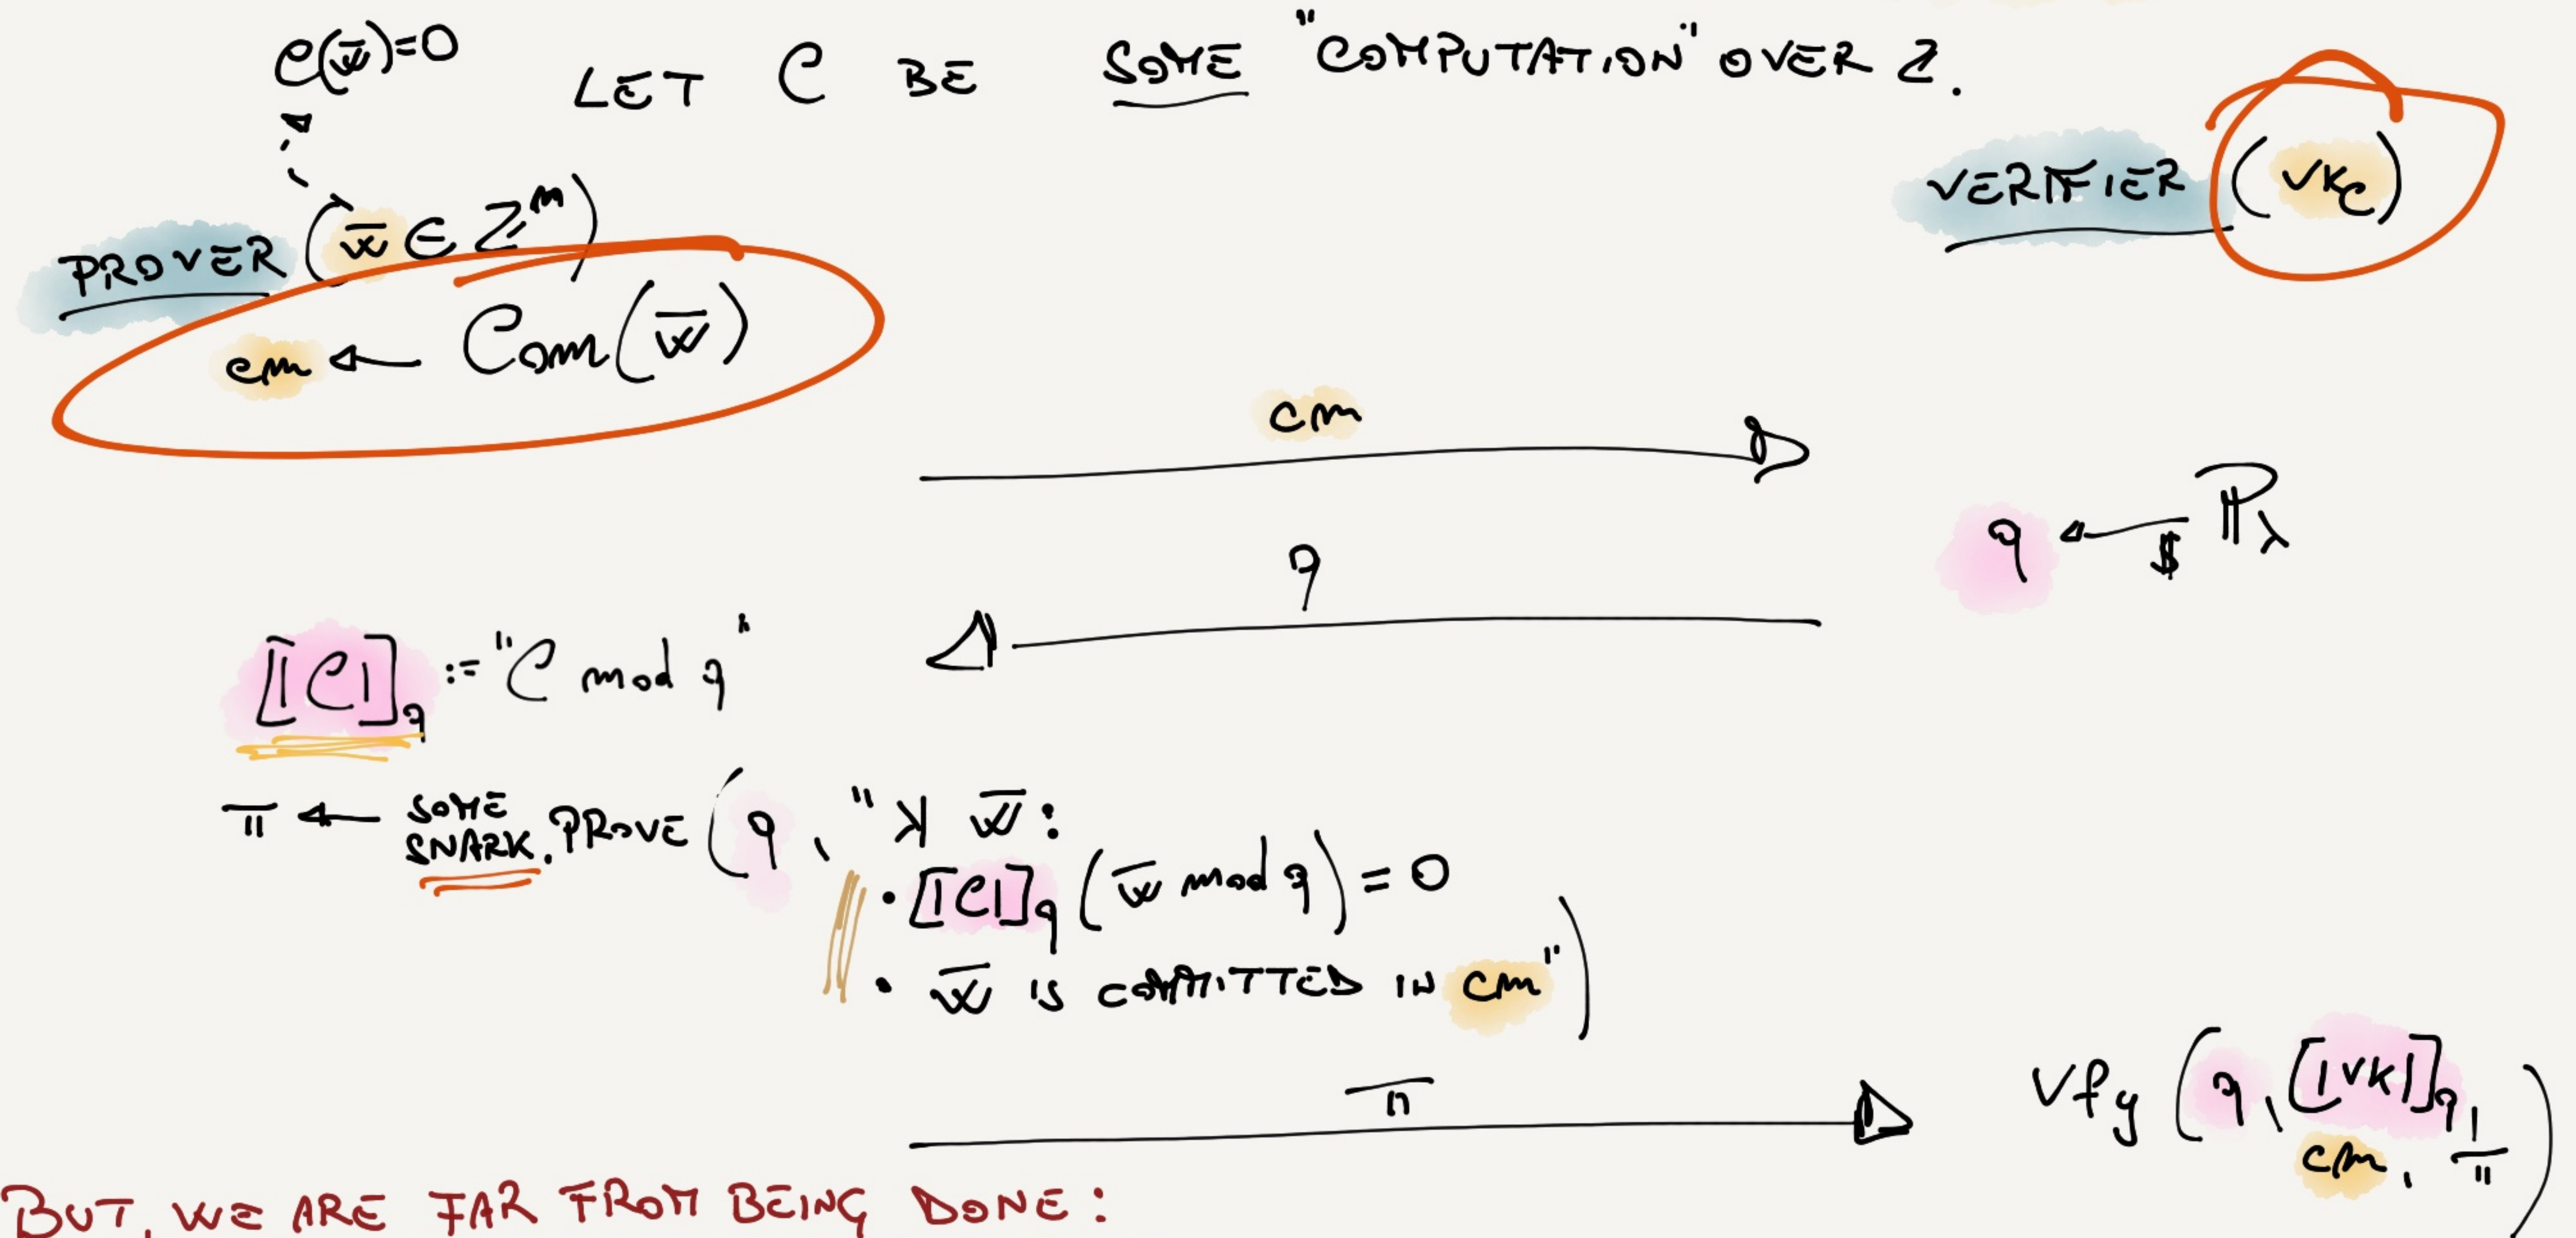 C(w̄)=0
LET C BE SOME "COMPUTATION" OVER Z.
VERIFIER (vk_C)
PROVER (w̄ ∈ Z^m)
cm ← Com(w̄)
cm
q ←$ ℙ_λ
q
[|C|]_q := "C mod q"
π ← SOME SNARK.PROVE (q, "ꓘ w̄:
• [|C|]_q (w̄ mod q) = 0
• w̄ IS COMMITTED IN cm")
π
Vfy (q, [|vk|]_q, cm, π)
BUT, WE ARE FAR FROM BEING DONE: